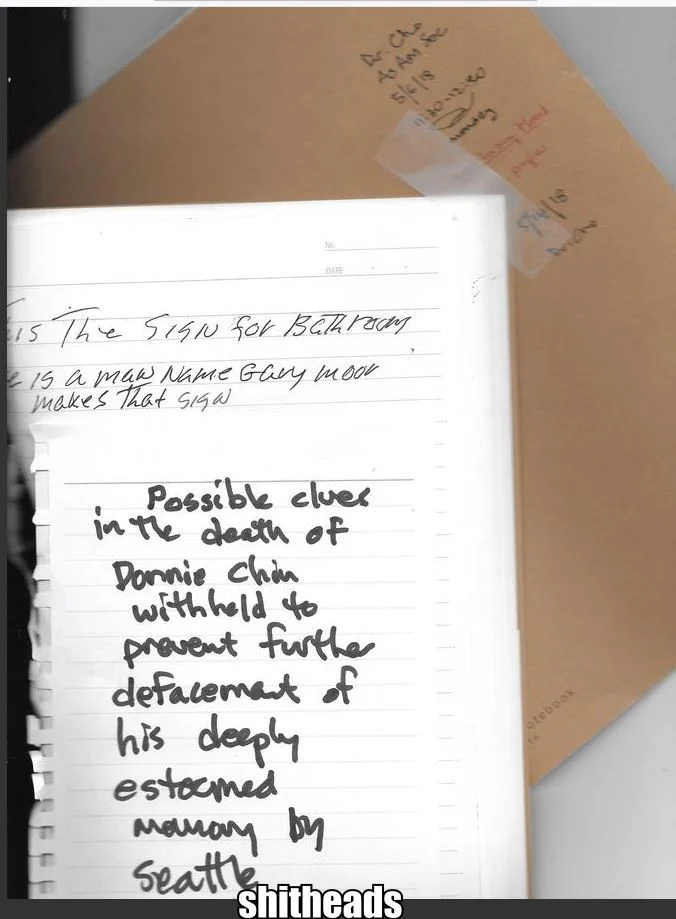 Dr. Cho
As Am Soc
5/6/18
11:20-12:40
5/14/18
Dr. Cho
No.
DATE
is The Sign for Bathroom
e is a man Name Gary moor
makes That sign
Possible clues
in the death of
Donnie Chin
withheld to
prevent further
defacement of
his deeply
esteemed
memory by
Seattle
shitheads
otebook